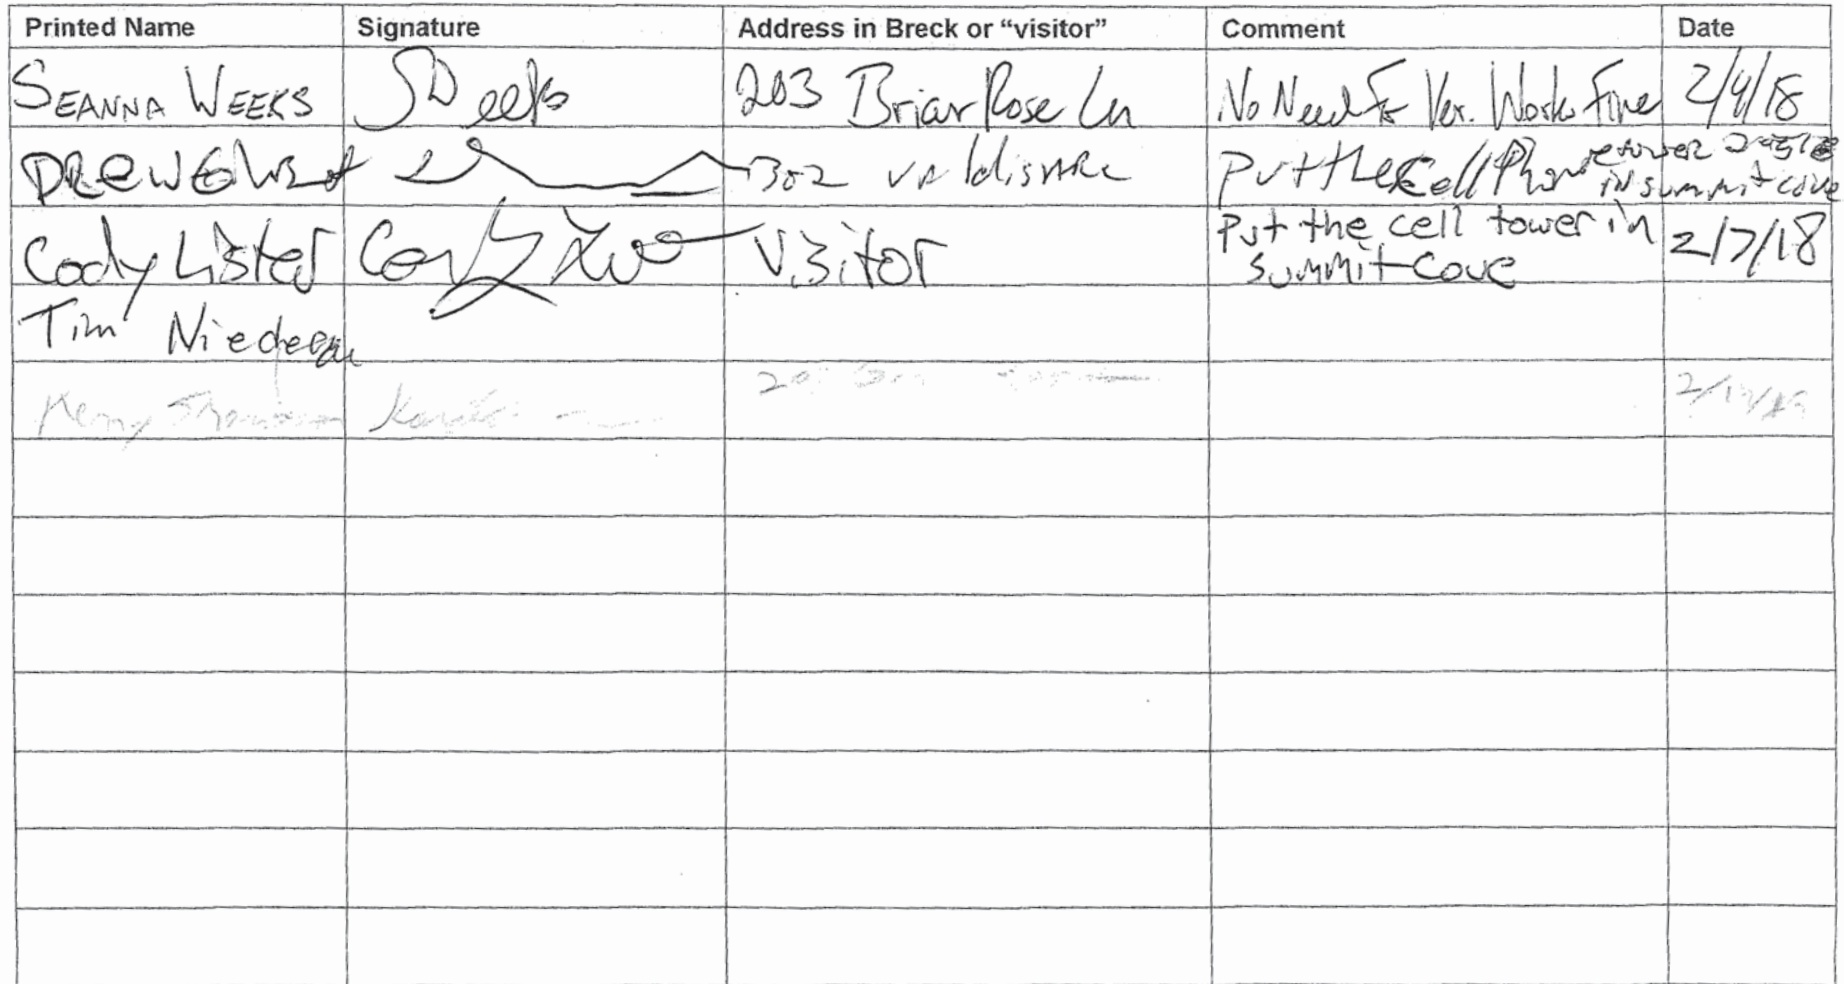 Printed Name Signature Address in Breck or "visitor" Comment Date
SEANNA WEEKS SWeeks 203 Briar Rose Ln No Need For Ver. Works Fine 2/4/18
DREW 302 Put the Cell Phone tower in summit cove
Cody Lister Visitor Put the cell tower in summit cove 2/7/18
Tim
Kerry